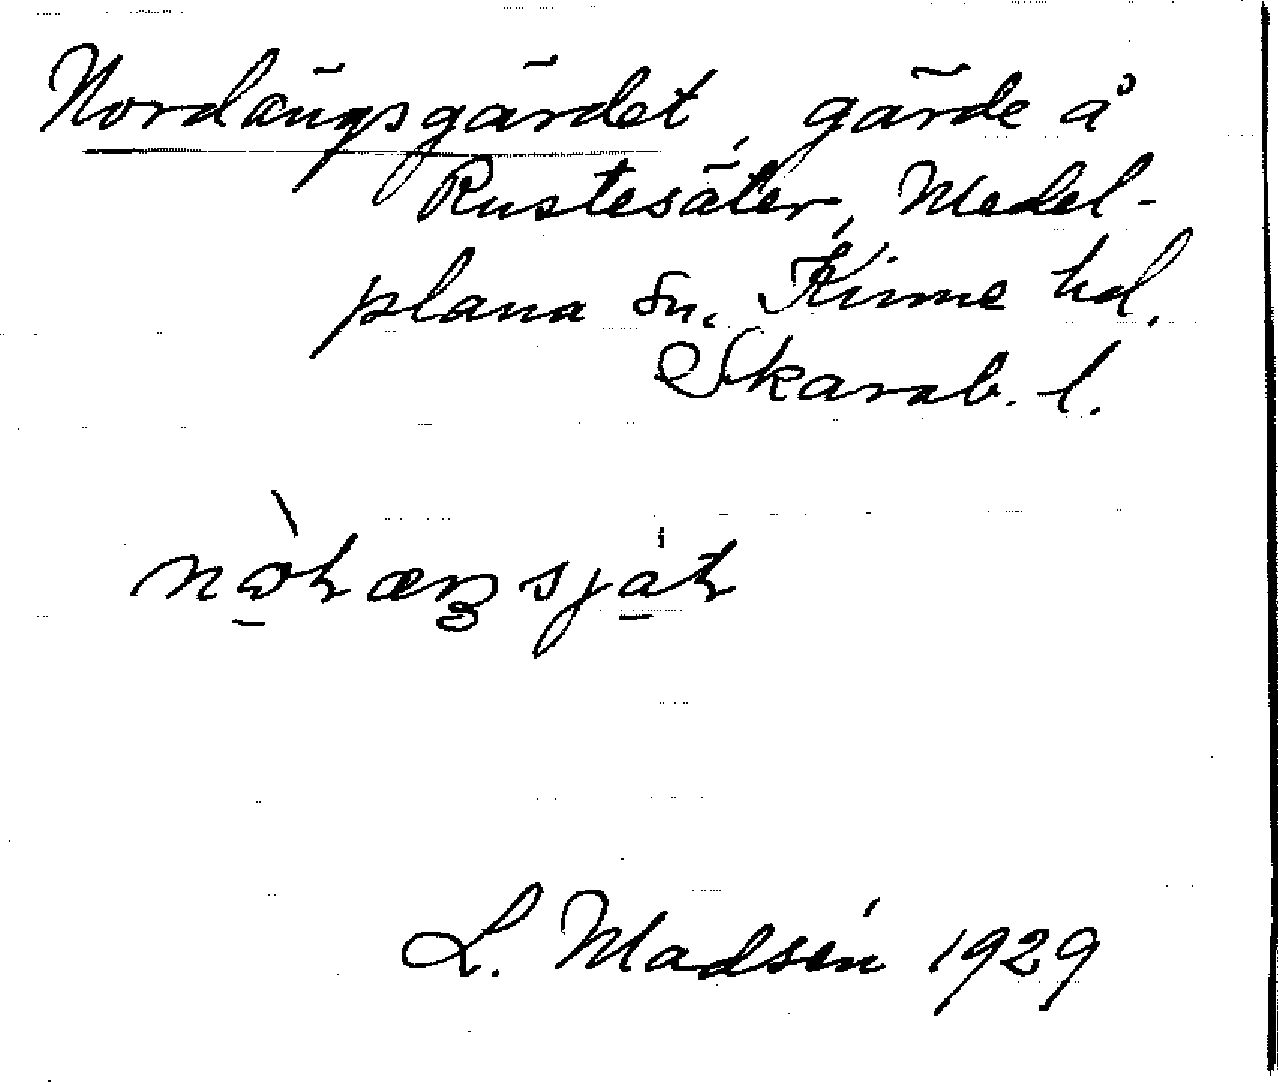 Nordängsgärdet, gärde å
Rustesäter, Medel-
plana sn. Kinne hd.
Skarab. l.
L. Madsén 1929